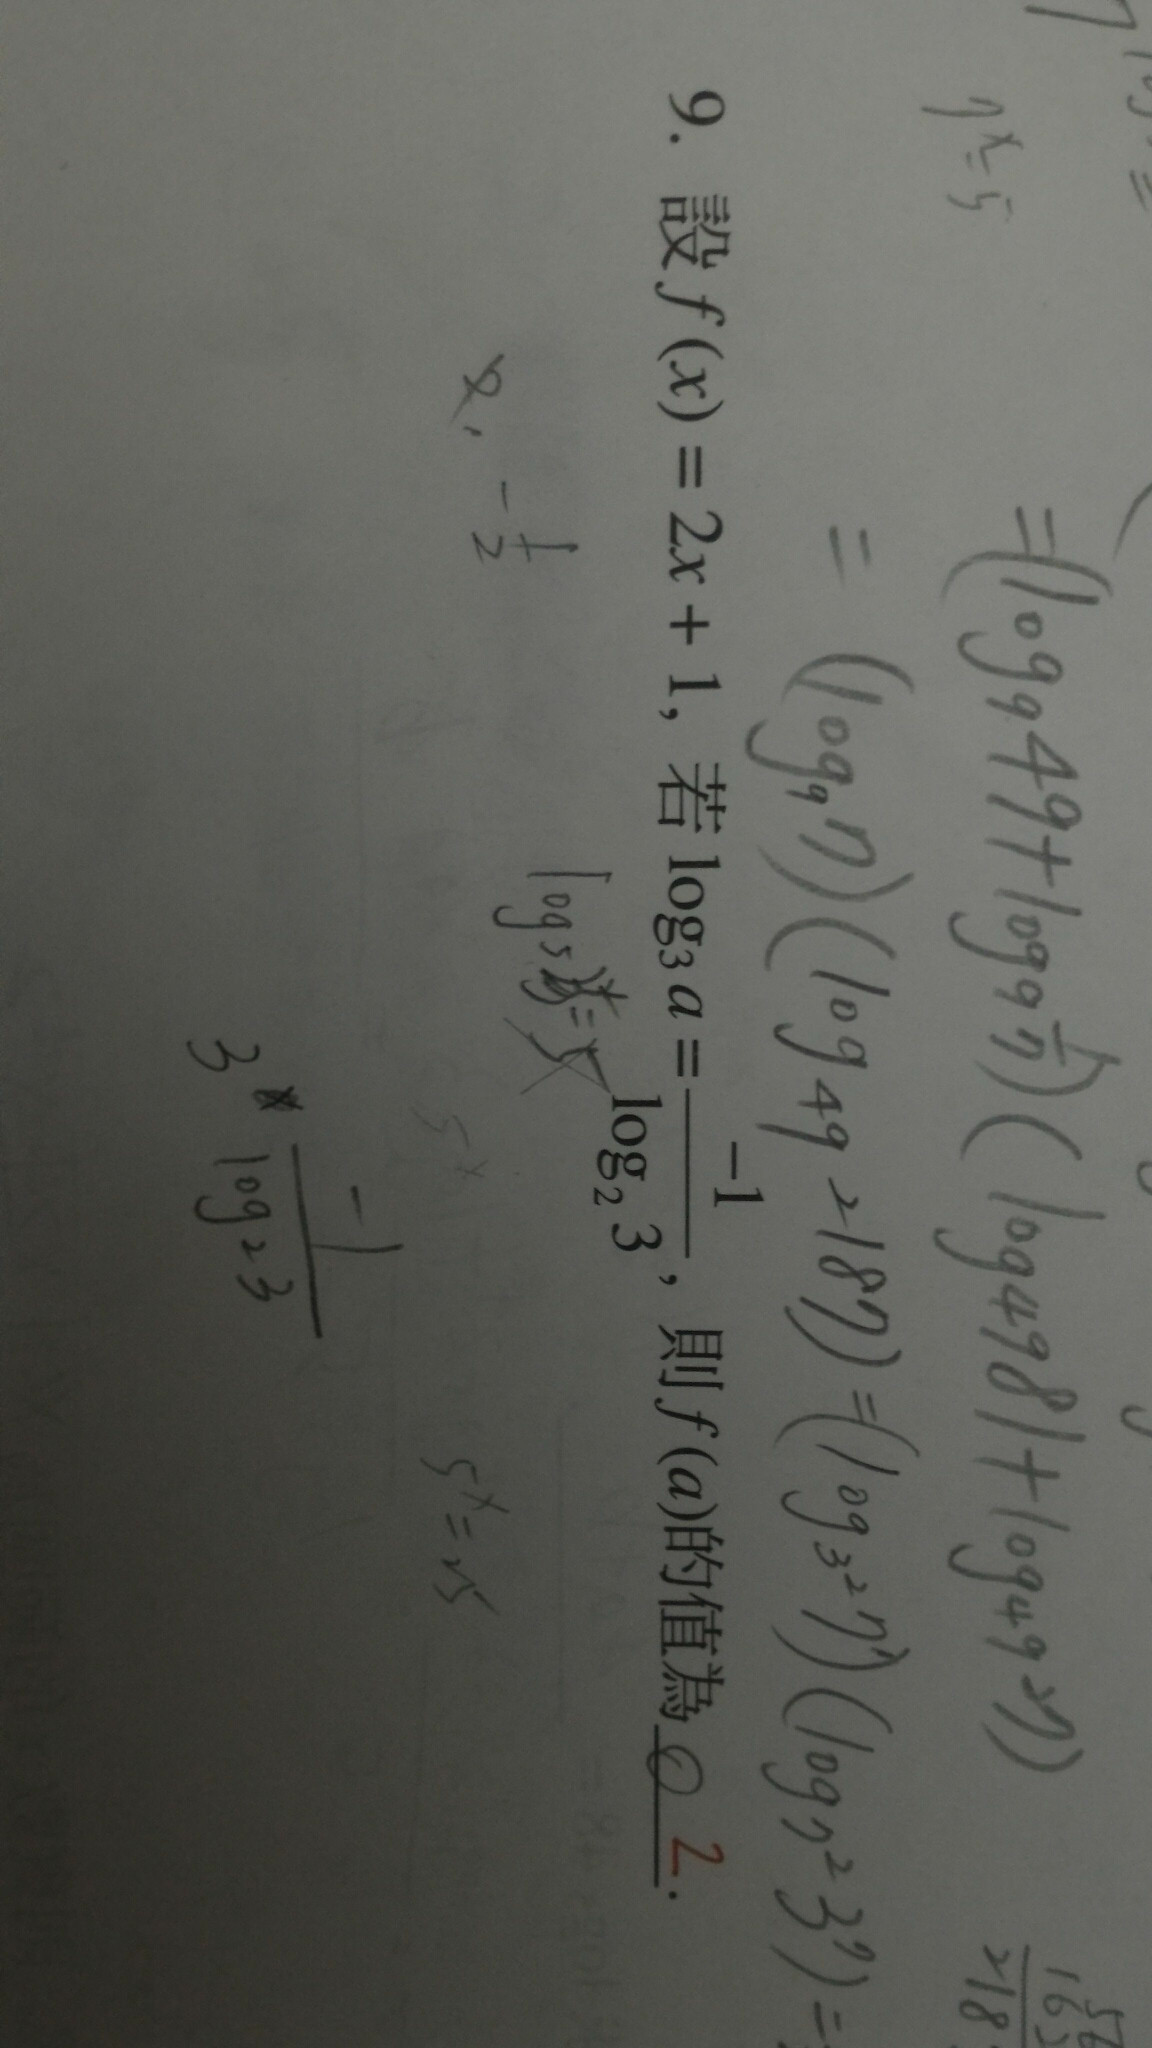 7^x=5
=(log₉49+log₉1/7)(log₄₉81+log₄₉27)
=(log₉7)(log₄₉2187)=(log₃²7¹)(log₇²3⁷)=
9. 設f(x)=2x+1，若log₃a=-1/log₂3，則f(a)的值為 0 2.
-1/2
log₅
5^x
5^x=25
3 -1/log₂3